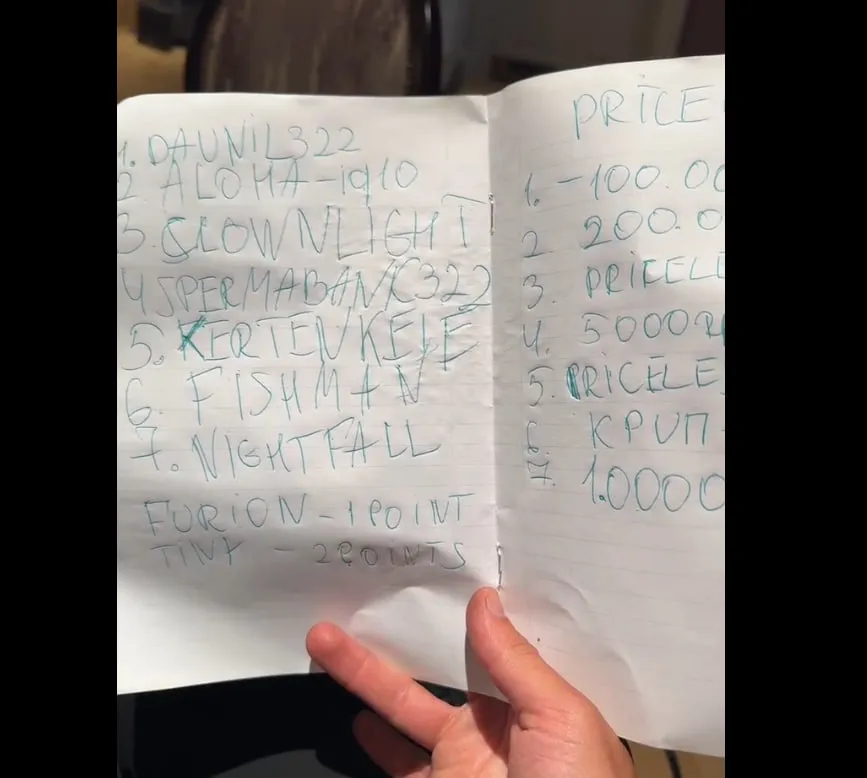 1. DAUNIL322
2 ALOHA-iq10
3. CLOWNLIGHT
4 SPERMABANK322
5. KERTENKELE
6. FISHMAN
7. NIGHTFALL
FURION - 1 POINT
TINY - 2 POINTS
PRICE
1. -100.00
2 200.0
3. PRICELE
4. 5000
5. PRICELE
6. КРИП
7. 1.0000